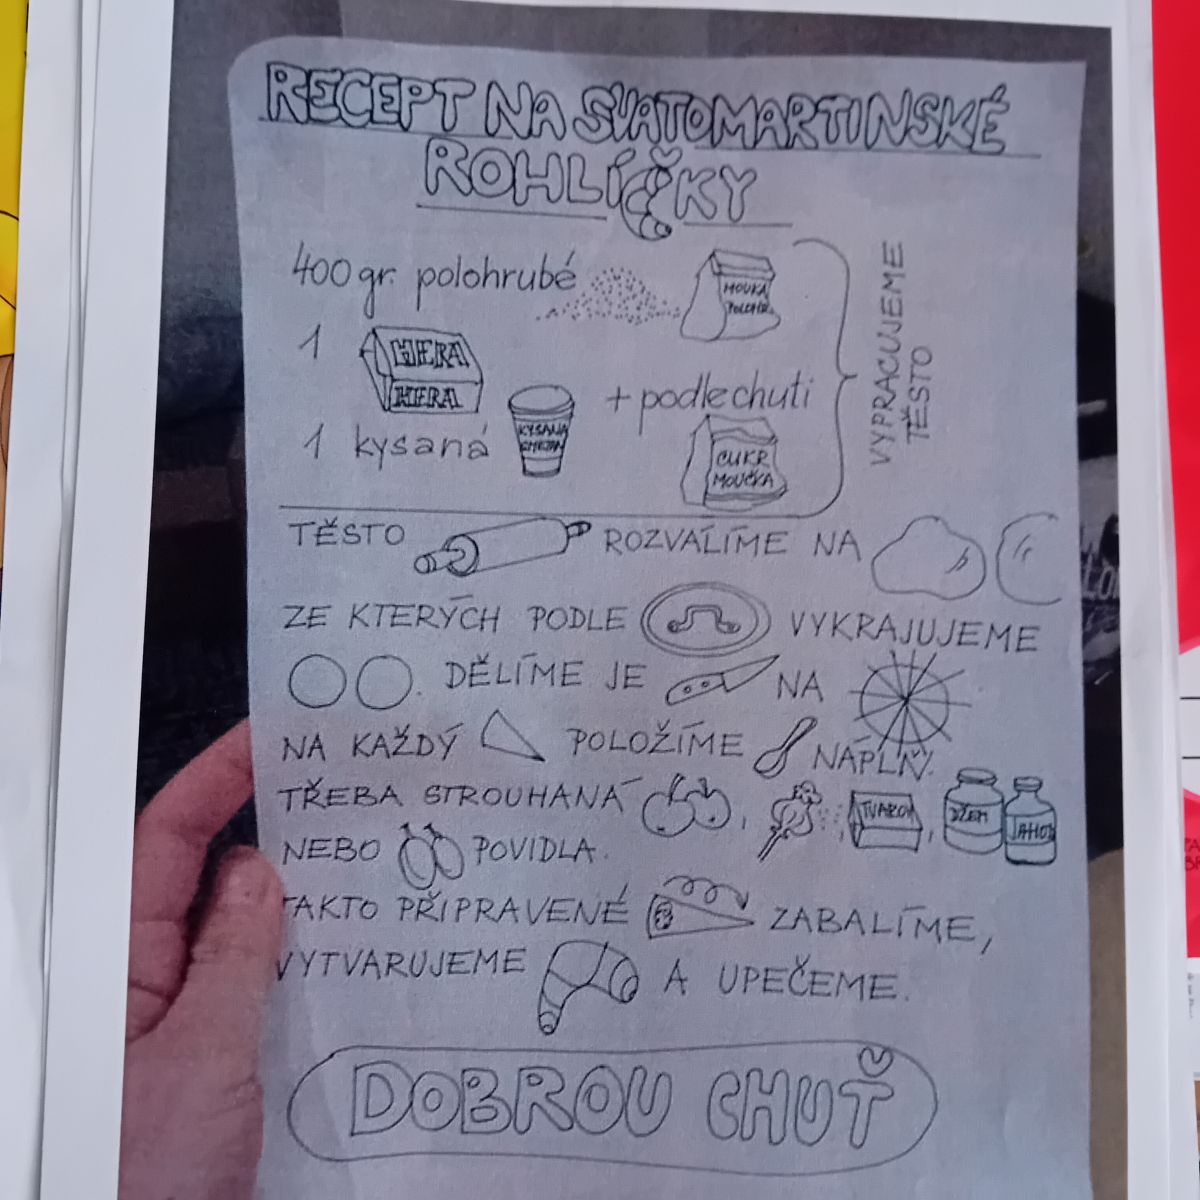 RECEPT NA SVATOMARTINSKÉ
ROHLÍČKY
400 gr. polohrubé
MOUKA
POLOHR.
1 HERA
HERA
1 kysaná
KYSANÁ
SMETAN
+ podle chuti
CUKR
MOUČKA
VYPRACUJEME
TĚSTO
TĚSTO ROZVÁLÍME NA
ZE KTERÝCH PODLE VYKRAJUJEME
. DĚLÍME JE NA
NA KAŽDÝ POLOŽÍME NÁPLŇ.
TŘEBA STROUHANÁ , , TVAROH , DŽEM JAHOD
NEBO POVIDLA.
TAKTO PŘIPRAVENÉ ZABALÍME,
VYTVARUJEME A UPEČEME.
DOBROU CHUŤ